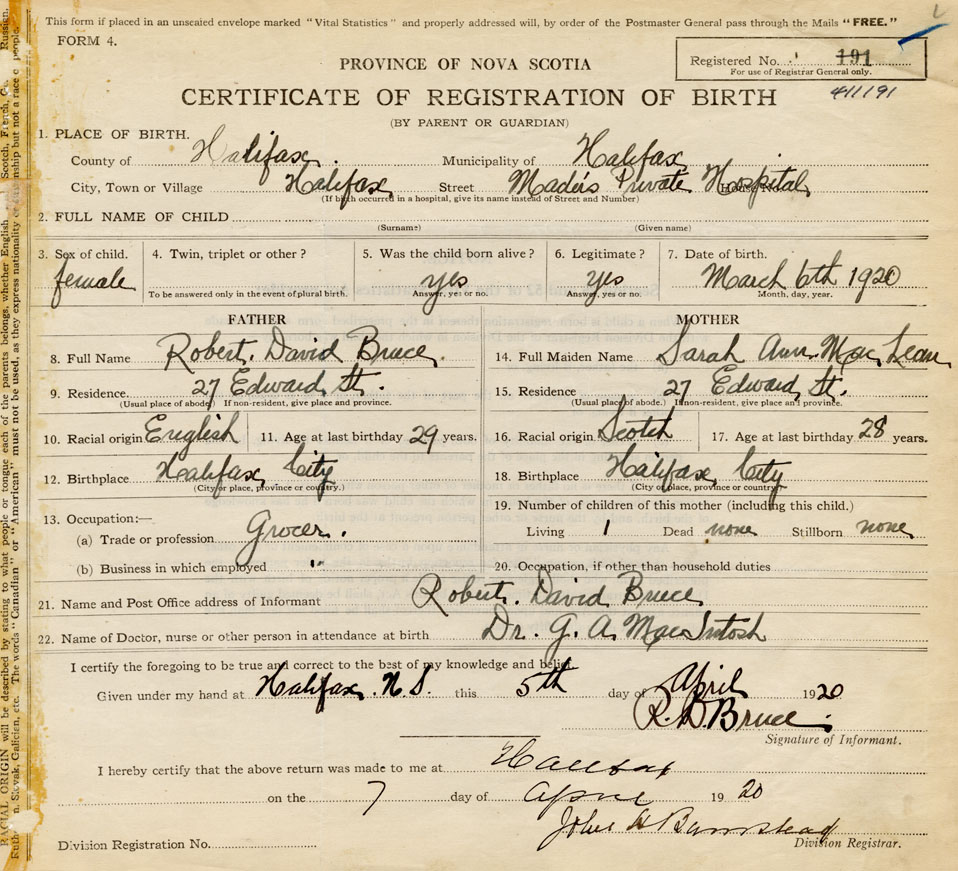 This form if placed in an unsealed envelope marked "Vital Statistics" and properly addressed will, by order of the Postmaster General pass through the Mails "FREE."
FORM 4.
Registered No. 191
For use of Registrar General only.
411191
PROVINCE OF NOVA SCOTIA
CERTIFICATE OF REGISTRATION OF BIRTH
(BY PARENT OR GUARDIAN)
1. PLACE OF BIRTH.
County of Halifax. Municipality of Halifax
City, Town or Village Halifax Street Mader's Private Hospital
(If birth occurred in a hospital, give its name instead of Street and Number)
2. FULL NAME OF CHILD
(Surname) (Given name)
3. Sex of child. 4. Twin, triplet or other? 5. Was the child born alive? 6. Legitimate? 7. Date of birth.
female yes yes March 6th 1920
To be answered only in the event of plural birth. Answer, yes or no. Answer, yes or no. Month, day, year.
FATHER MOTHER
8. Full Name Robert. David Bruce. 14. Full Maiden Name Sarah Ann. Mac Lean
9. Residence 27 Edward St. 15. Residence 27 Edward St.
(Usual place of abode) If non-resident, give place and province. (Usual place of abode.) If non-resident, give place and province.
10. Racial origin English 11. Age at last birthday 29 years. 16. Racial origin Scotch 17. Age at last birthday 28 years.
12. Birthplace Halifax City 18. Birthplace Halifax City
(City or place, province or country.) (City or place, province or country)
13. Occupation:— 19. Number of children of this mother (including this child.)
(a) Trade or profession Grocer. Living 1 Dead none Stillborn none
(b) Business in which employed " 20. Occupation, if other than household duties
21. Name and Post Office address of Informant Robert. David Bruce
22. Name of Doctor, nurse or other person in attendance at birth Dr. G. A. MacIntosh
I certify the foregoing to be true and correct to the best of my knowledge and belief.
Given under my hand at Halifax. N.S. this 5th day of April 1920
R. D. Bruce.
Signature of Informant.
I hereby certify that the above return was made to me at Halifax
on the 7 day of April 1920
John H Barnstead
Division Registration No. Division Registrar.
RACIAL ORIGIN will be described by stating to what people or tongue each of the parents belongs, whether English Scotch, French, Russian,
Slovak, Galicien, etc. The words "Canadian" or "American" must not be used, as they express nationality but not a race people.